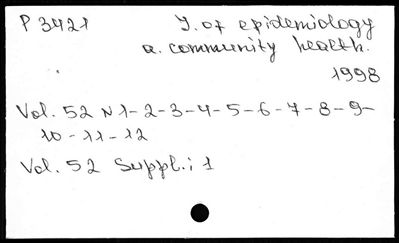 P 3421 J. of epidemiology
a. community health.
1998
Vol. 52 N 1-2-3-4-5-6-7-8-9-
10-11-12
Vol. 52 Suppl.: 1